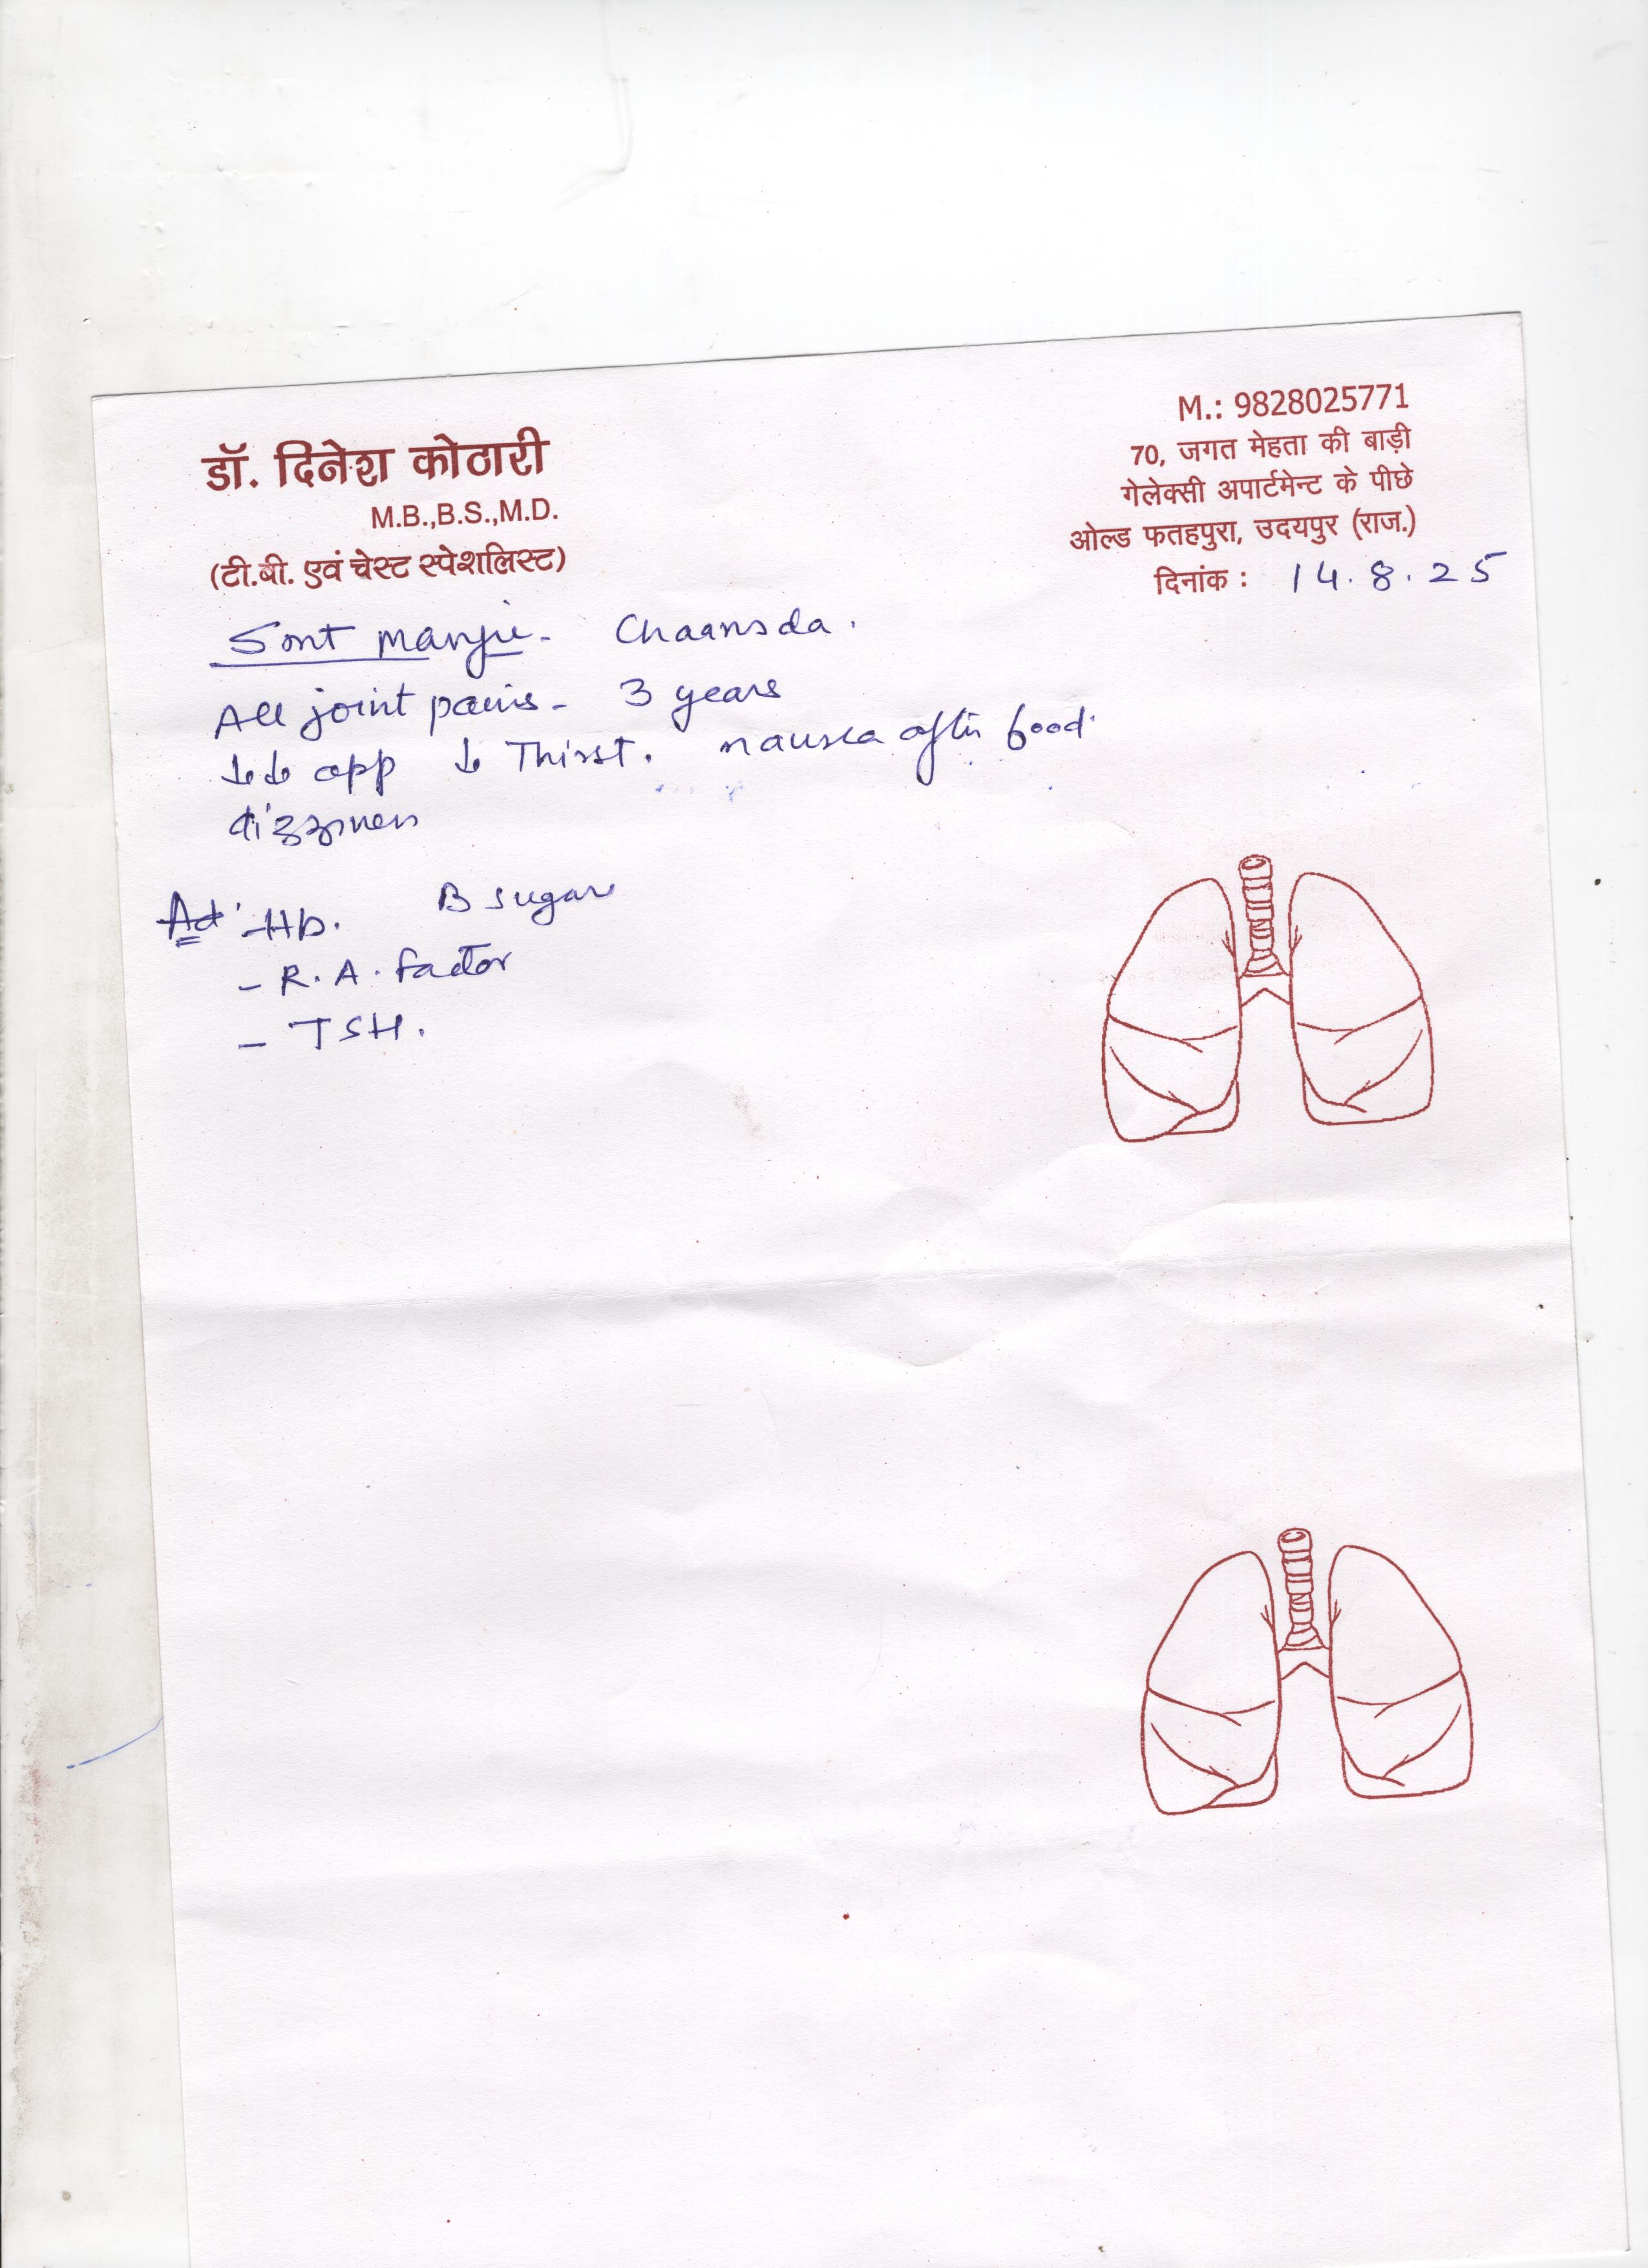 M.: 9828025771
डॉ. दिनेश कोठारी
70, जगत मेहता की बाड़ी
M.B.,B.S.,M.D.
गेलेक्सी अपार्टमेन्ट के पीछे
(टी.बी. एवं चेस्ट स्पेशलिस्ट)
ओल्ड फतहपुरा, उदयपुर (राज.)
दिनांक : 14.8.25
Smt - Chaansda.
All joint pains - 3 years
↓↓ app ↓ Thirst. nausea after food.
dizziness
Ad' - Hb. B sugar
- R.A. factor
- TSH.